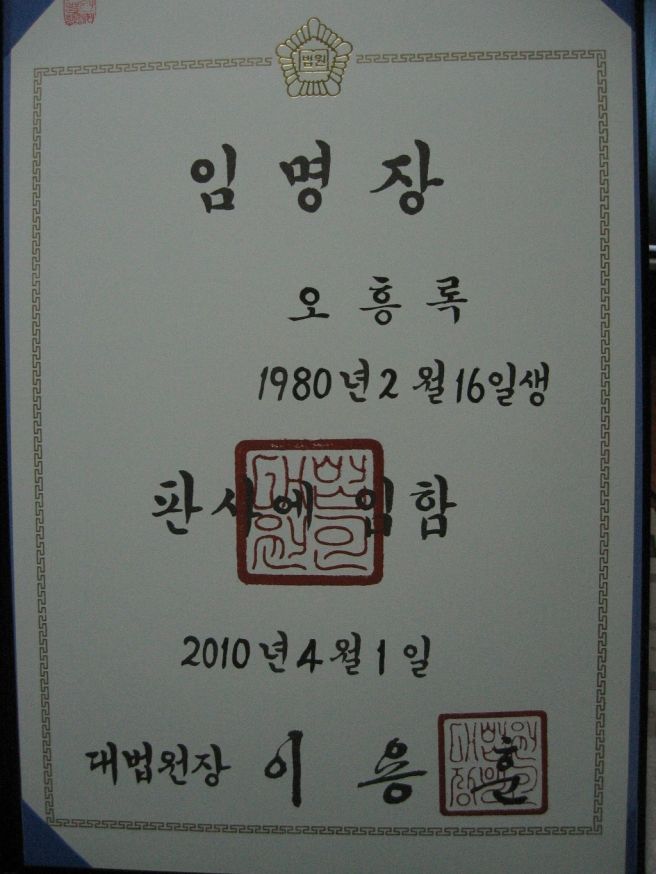 법원
임명장
오흥록
1980년 2월 16일생
판사에 임함
2010년 4월 1일
대법원장 이용훈